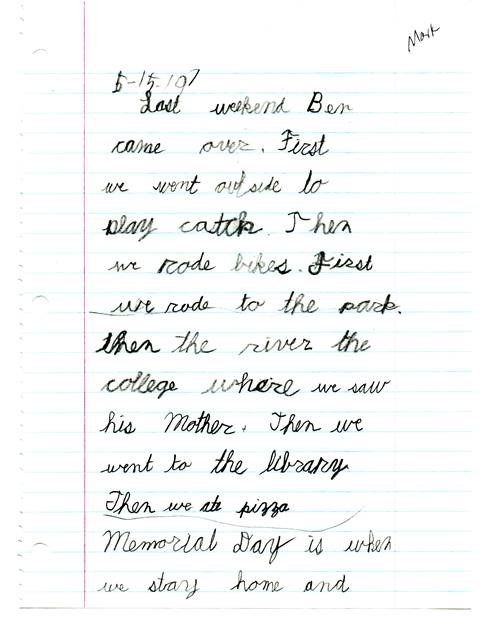 Mark
5-15-97
Last weekend Ben
came over. First
we went outside to
play catch. Then
we rode bikes. First
we rode to the park.
then the river the
college where we saw
his Mother. Then we
went to the library
Then we ate pizza
Memorial Day is when
we stay home and